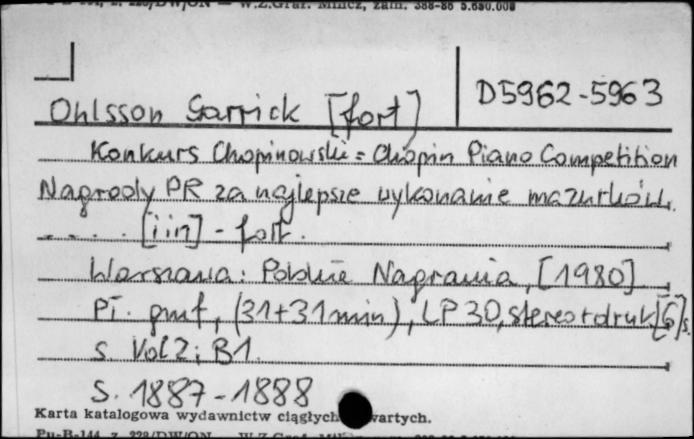 W.Z.Graf. Mińcz, zam. 388-86 5.680.000
D5962-5963
Ohlsson Garrick [fort]
Konkurs Chopinowski = Chopin Piano Competition
Nagrody PR za najlepsze wykonanie mazurków.
. . . . [iin] - fort.
Warszawa: Polskie Nagrania, [1980]
Pł. gmf, (31+31min), LP 30, stereo + druk [6]s.
s. Vol 2; B1.
S. 1887-1888
Karta katalogowa wydawnictw ciągłych
Pu-B-144, z. 228/DW/ON — W.Z.Graf.